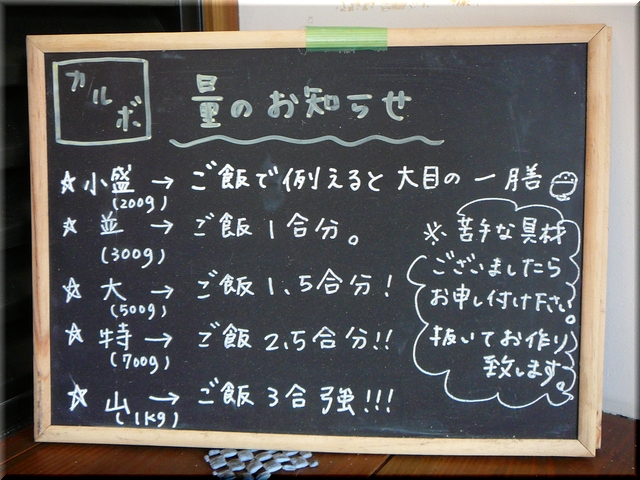 カルボ
量のお知らせ
☆小盛→ご飯で例えると大目の一膳
(200g)
☆並→ご飯1合分。
(300g)
☆大→ご飯1.5合分!
(500g)
☆特→ご飯2.5合分!!
(700g)
☆山→ご飯3合強!!!
(1kg)
※苦手な具材
ございましたら
お申し付け下さい。
抜いてお作り
致します。